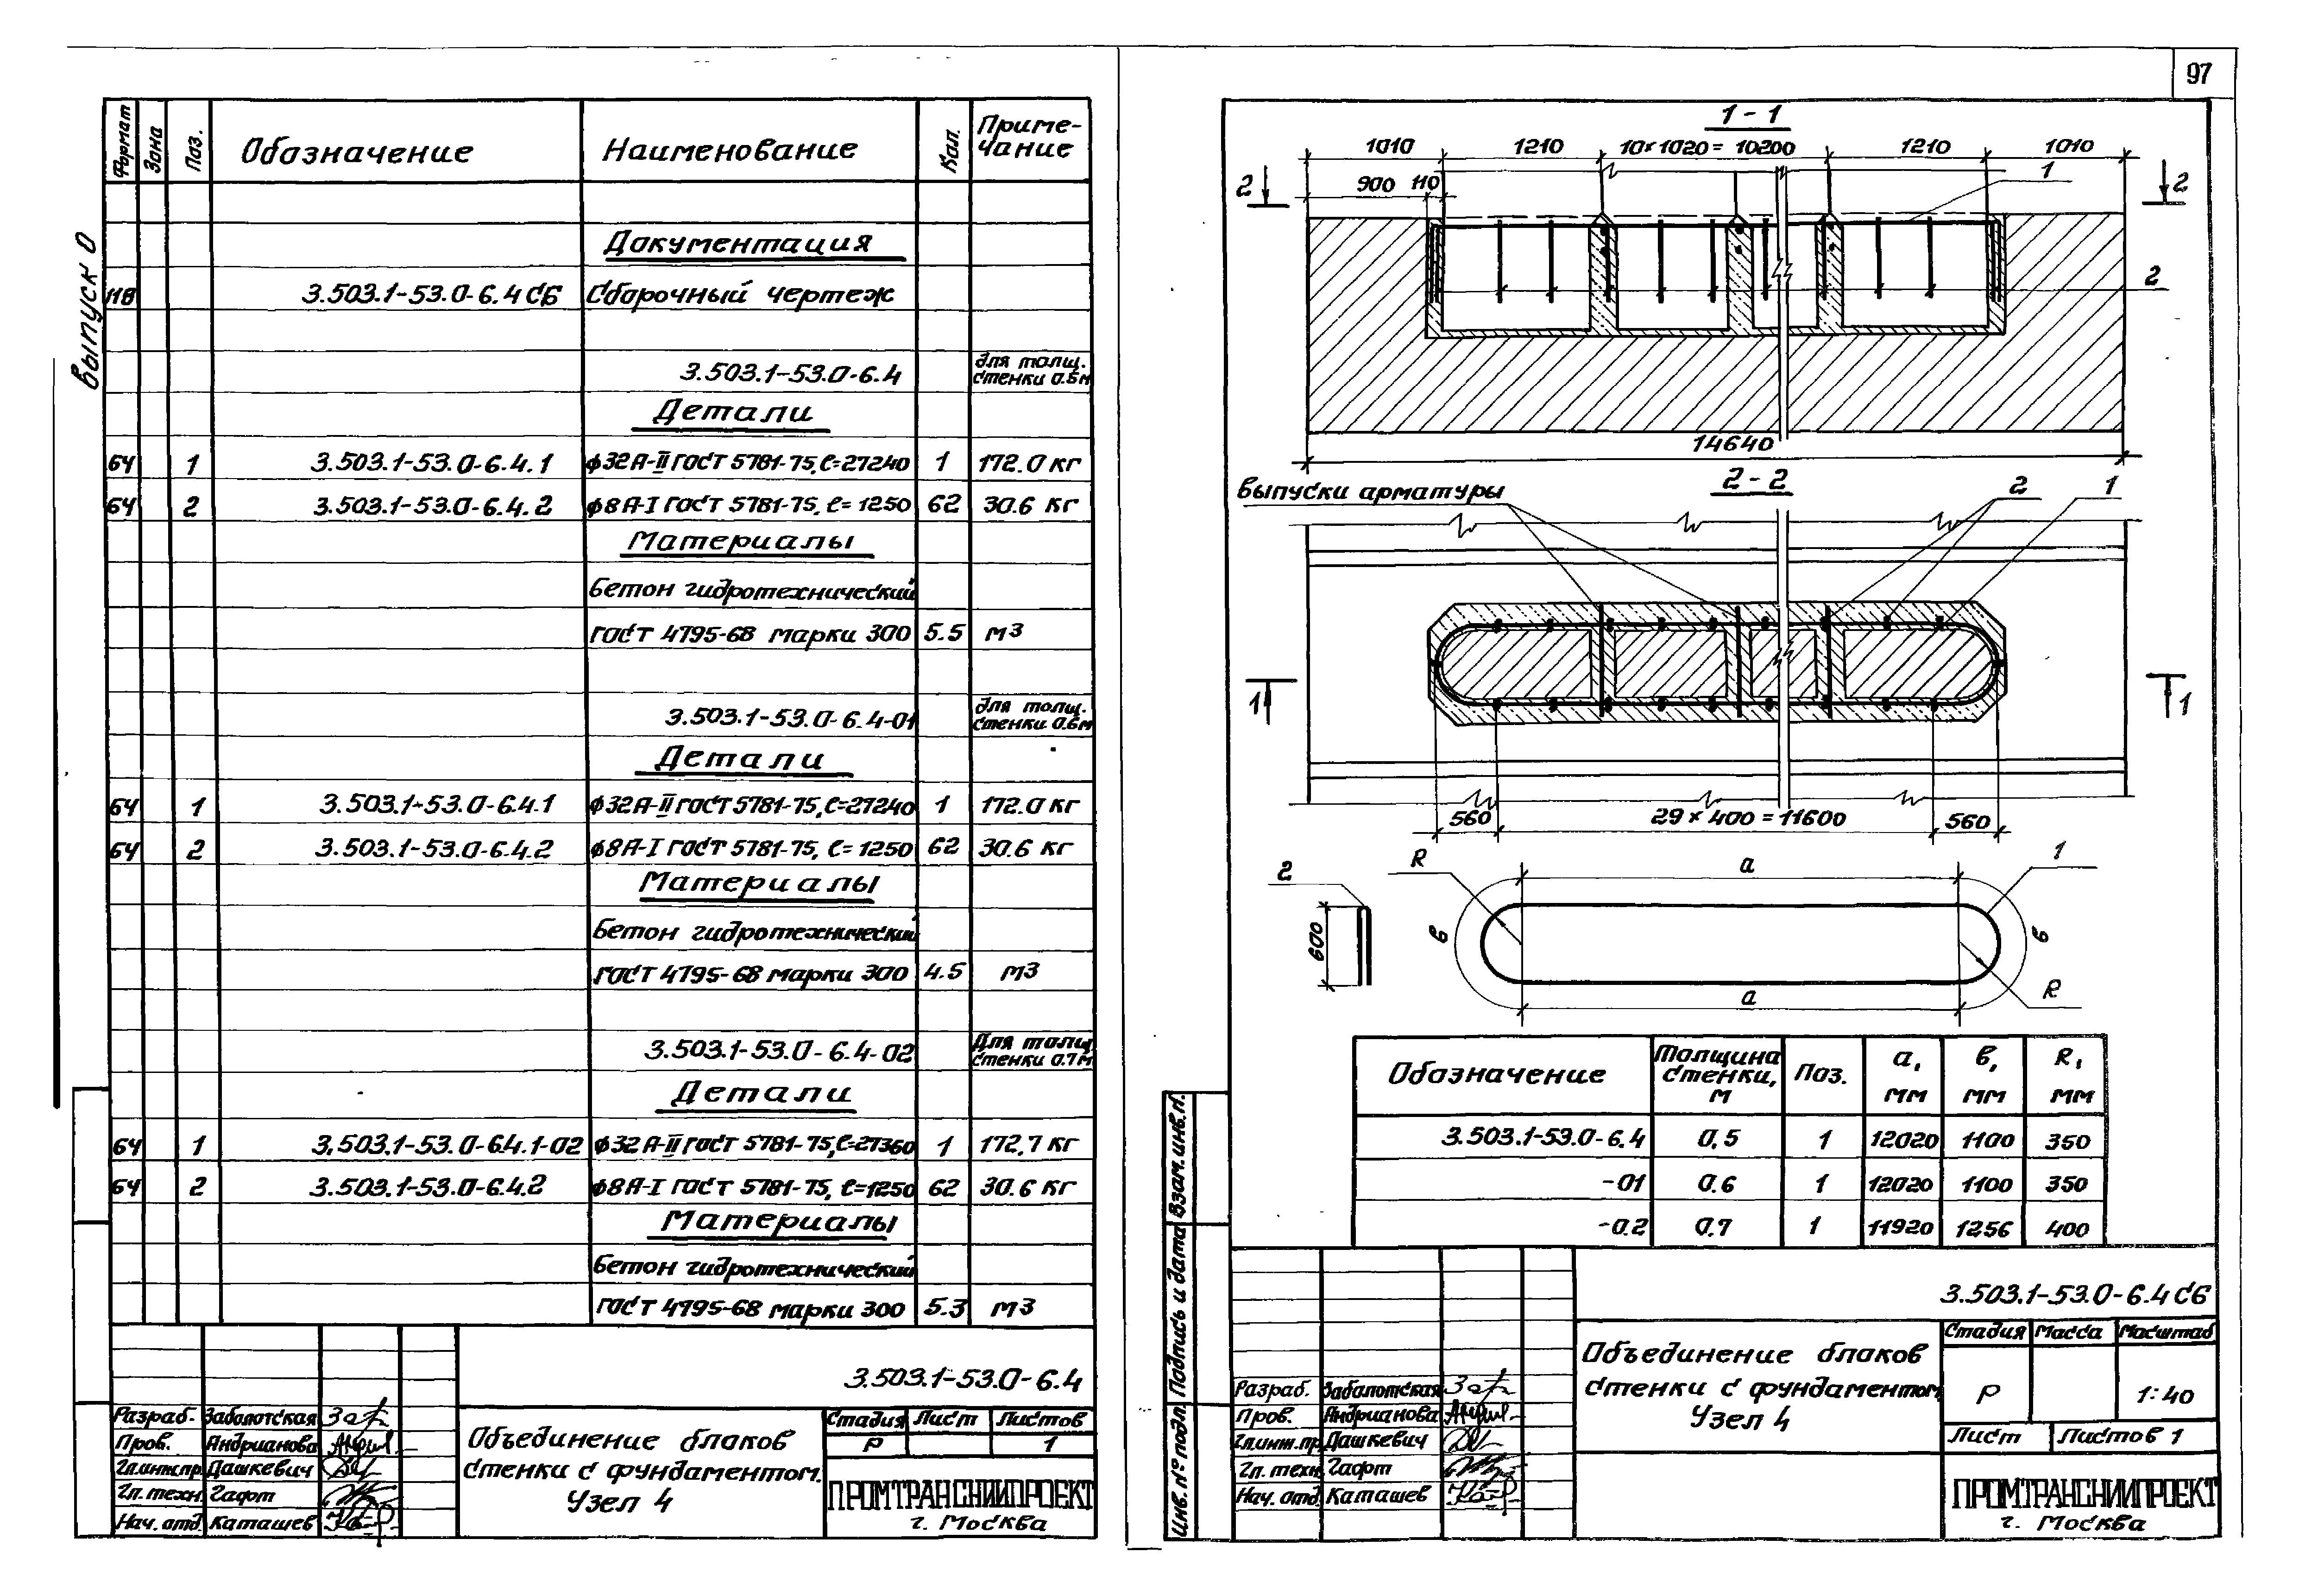 97
Выпуск 0
Формат Зона Поз. Обозначение Наименование Кол. Приме-
чание
Документация
11В 3.503.1-53.0-6.4 СБ Сборочный чертеж
3.503.1-53.0-6.4 для толщ.
стенки 0.5м
Детали
БЧ 1 3.503.1-53.0-6.4.1 ф32А-II ГОСТ 5781-75, ℓ=27240 1 172.0 кг
БЧ 2 3.503.1-53.0-6.4.2 ф8А-I ГОСТ 5781-75, ℓ=1250 62 30.6 кг
Материалы
Бетон гидротехнический
ГОСТ 4795-68 марки 300 5.5 м3
3.503.1-53.0-6.4-01 для толщ.
стенки 0.6м
Детали
БЧ 1 3.503.1-53.0-6.4.1 ф32А-II ГОСТ 5781-75, ℓ=27240 1 172.0 кг
БЧ 2 3.503.1-53.0-6.4.2 ф8А-I ГОСТ 5781-75, ℓ=1250 62 30.6 кг
Материалы
Бетон гидротехнический
ГОСТ 4795-68 марки 300 4.5 м3
3.503.1-53.0-6.4-02 Для толщ
стенки 0.7м
Детали
БЧ 1 3.503.1-53.0-6.4.1-02 ф32А-II ГОСТ 5781-75, ℓ=27360 1 172.7 кг
БЧ 2 3.503.1-53.0-6.4.2 ф8А-I ГОСТ 5781-75, ℓ=1250 62 30.6 кг
Материалы
Бетон гидротехнический
ГОСТ 4795-68 марки 300 5.3 м3
3.503.1-53.0-6.4
Разраб. Заболотская
Пров. Андрианова
Гл.инж.пр. Дашкевич
Гл. техн. Гафт
Нач. отд. Каташев
Объединение блоков
стенки с фундаментом.
Узел 4
Стадия Лист Листов
Р 1
ПРОМТРАНСНИИПРОЕКТ
г. Москва
1-1
1010 1210 10×1020=10200 1210 1010
900 110
2 2
1
2
14640
2-2
Выпуски арматуры
2 1
1 1
560 29×400=11600 560
2
600
R а 1
в в
а R
Обозначение Толщина
стенки,
м Поз. а,
мм в,
мм R,
мм
3.503.1-53.0-6.4 0,5 1 12020 1100 350
-01 0.6 1 12020 1100 350
-0.2 0.7 1 11920 1256 400
Инв. № подл. Подпись и дата Взам.инв.н.
3.503.1-53.0-6.4 СБ
Разраб. Заболотская
Пров. Андрианова
Гл.инж.пр. Дашкевич
Гл. техн. Гафт
Нач. отд. Каташев
Объединение блоков
стенки с фундаментом
Узел 4
Стадия Масса Масштаб
Р 1:40
Лист Листов 1
ПРОМТРАНСНИИПРОЕКТ
г. Москва